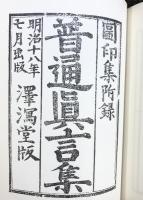 圖印集附録
普通眞言集
明治十八年
七月出版
澤瀉堂版